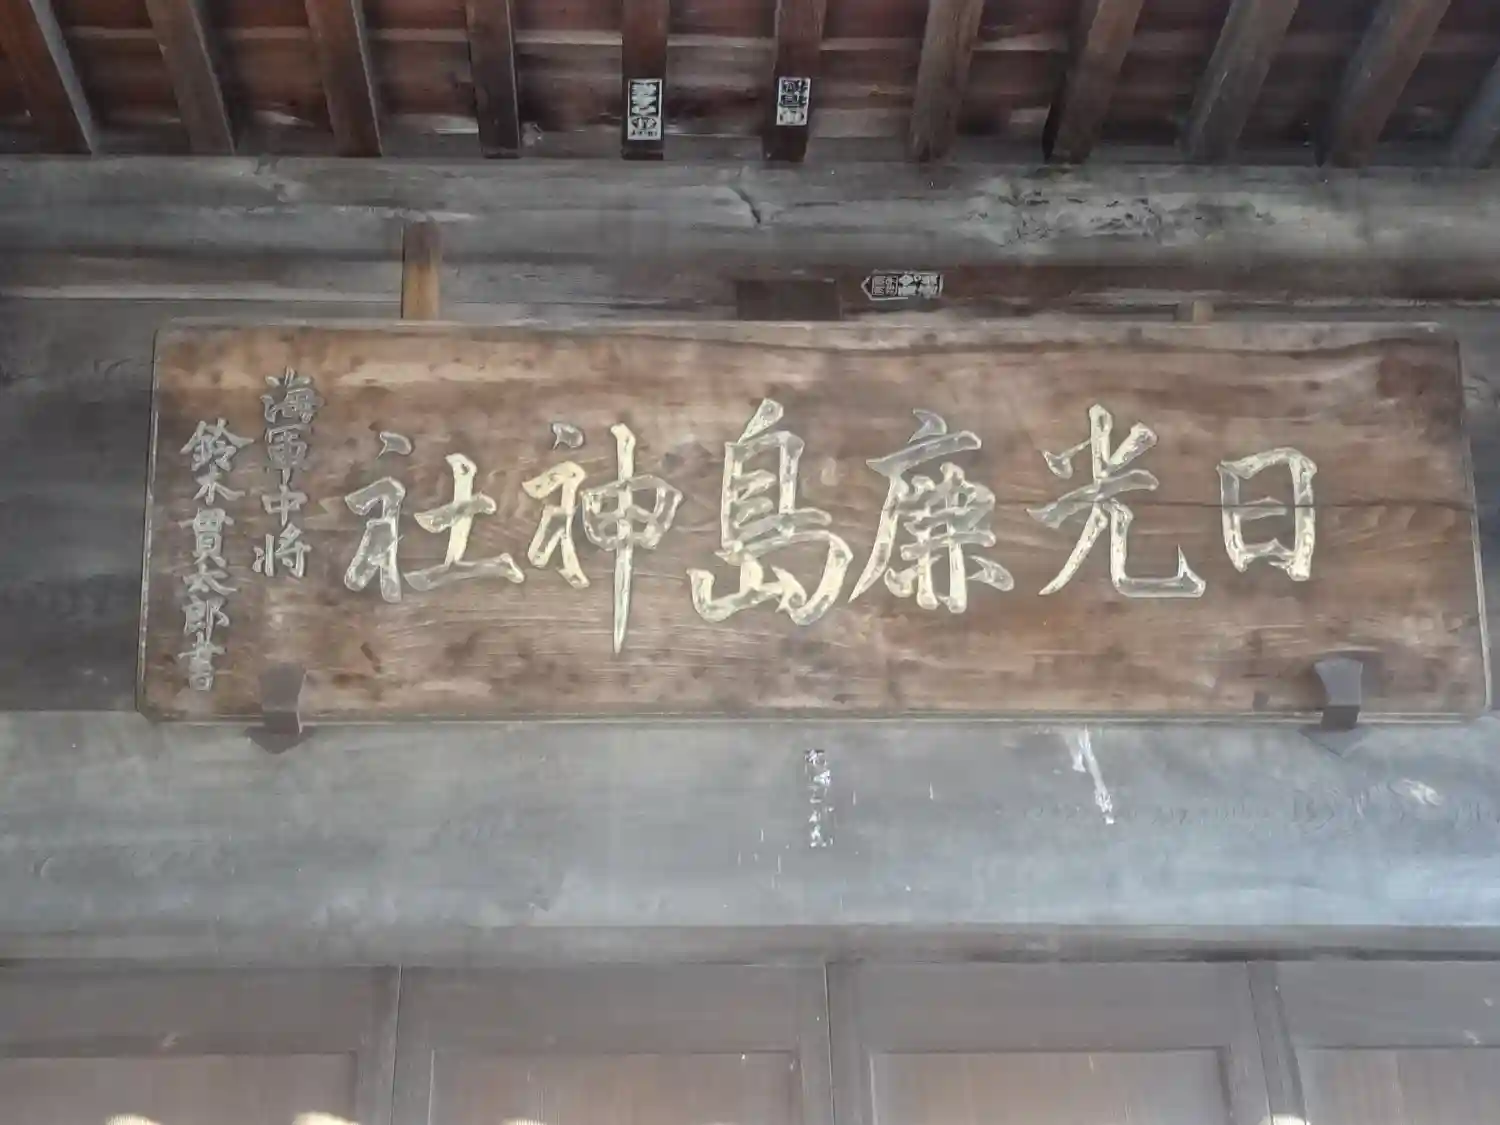 日光鹿島神社
海軍中将
鈴木貫太郎書